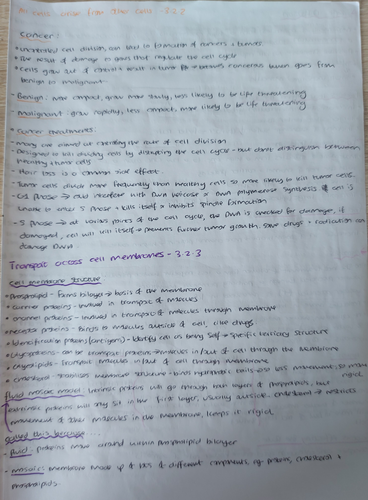 All cells arise from other cells - 3.2.2
Cancer:
• uncontrolled cell division, can lead to formation of cancers + tumors
• the result of damage to genes that regulate the cell cycle
• cells grow out of control + result in tumor becomes cancerous when goes from
benign to malignant
• Benign: more compact, grow more slowly, less likely to be life threatening
• malignant: grow rapidly, less compact, more likely to be life threatening
• Cancer treatments:
• Many are aimed at controlling the rate of cell division
• Designed to kill dividing cells by disrupting the cell cycle - but can't distinguish between
healthy + tumor cells
• Hair loss is a common side effect.
• Tumor cells divide more frequently than healthy cells so more likely to kill tumor cells.
• G1 phase → interfere with DNA helicase + DNA polymerase synthesis if cell is
unable to enter S phase + kills itself + inhibits spindle formation
• S phase → at various points of the cell cycle, the DNA is checked for damage, if
damaged, cell will kill itself + prevents further tumor growth. Some drugs + radiation can
damage DNA.
Transport across cell membranes - 3.2.3
Cell membrane structure
• Phospholipid - forms bilayer → basis of the membrane
• carrier proteins - involved in transport of molecules
• channel proteins - involved in transport of molecules through membrane
• receptor proteins - binds to molecules outside of cell, like drugs
• Identification proteins (antigens) - identify cell as being self → specific tertiary structure
• Glycoproteins - can be transport proteins → molecules in/out of cell through the membrane
• Glycolipids - transport molecules in/out of cell through membrane
• cholesterol - stabilises membrane structure - binds hydrophobic tails so less movement, so more
rigid
Fluid mosaic model: intrinsic proteins will go through both layers of phospholipids, but
extrinsic proteins will only sit in the first layer, usually outside. cholesterol → restricts
movement of other molecules in the membrane, keeps it rigid.
called this because...
- fluid: proteins move around within phospholipid bilayer
- mosaic: membrane made up of lots of different components, eg. proteins, cholesterol +
phospholipids.